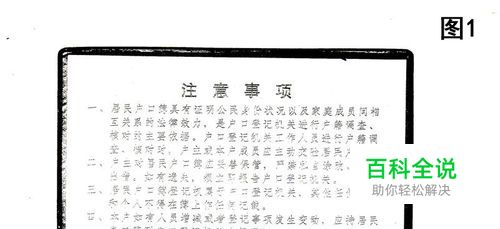 图1
注意事项
一、居民户口簿具有证明公民身份状况以及家庭成员间相
互关系的法律效力，是户口登记机关进行户籍调查、
核对的主要依据。户口登记机关工作人员进行户籍调
查、核对时，户主或本户成员应主动交验居民户
二、户主对居民户口簿应妥善保管，严禁私自涂改、
如有遗失，报户口登记机关。
三、居民户口簿登记权属于户口登记机关，其他任
和个人不得在簿上作任何记载。
四、本户如有人员增减或者登记事项发生变动，应持居民
百科全说
助你轻松解决